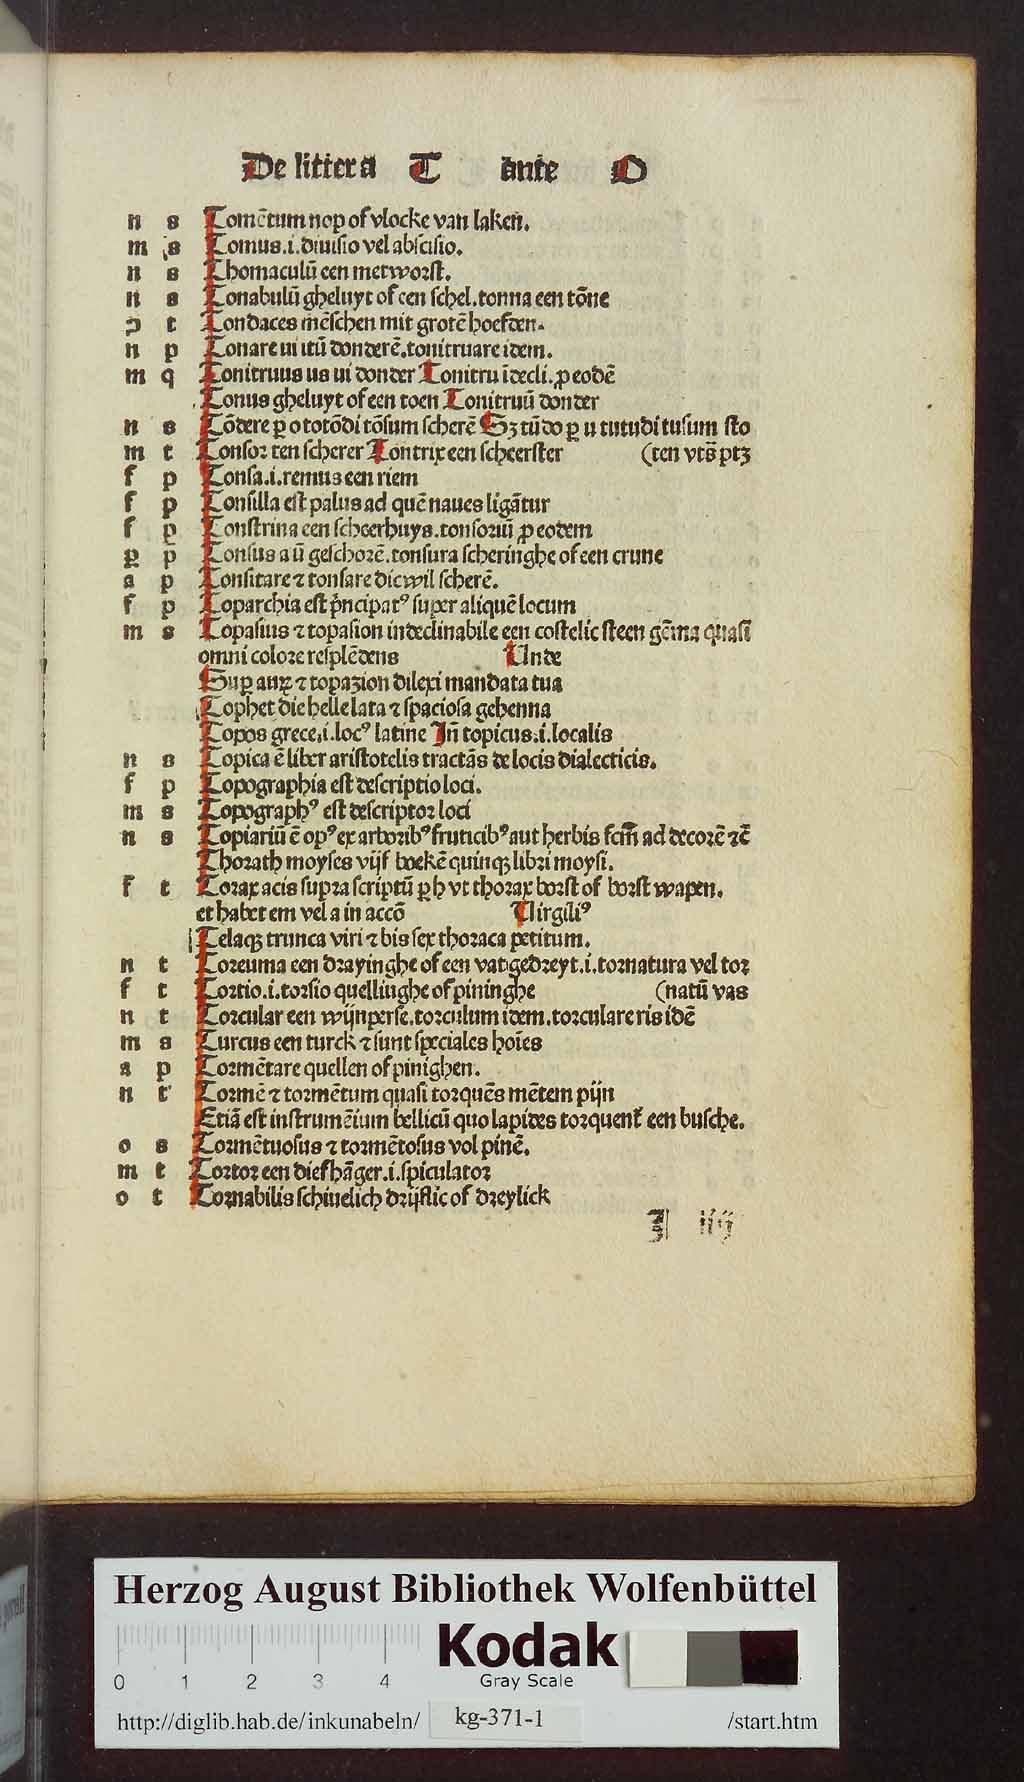 De littera T ante O
n s Tomētum nop of vlocke van laken.
m s Tomus.i.diuisio vel abscisio.
n s Thomaculū een metworst.
n s Tonabulū gheluyt of een schel.tonna een tōne
ɔ t Tondaces mēschen mit grotē hoefden.
n p Tonare ui itū donderē.tonitruare idem.
m q Tonitruus us ui donder Tonitru īdecli.ꝓ eodē
Tonus gheluyt of een toen Tonitruū donder
n s Tōdere ꝑ o totōdi tōsum scherē Sꝫ tūdo ꝑ u tutudi tusum sto
m t Tonsor ten scherer Tontrix een scheerster (ten vts̄ ptꝫ
f p Tonsa.i.remus een riem
f p Tonsilla est palus ad quē naues ligātur
f p Tonstrina een scheerhuys.tonsoriū ꝓ eodem
ꝑ p Tonsus a ū geschorē.tonsura scheringhe of een crune
a p Tonsitare ⁊ tonsare dicwil scherē.
f p Toparchia est p̄ncipatꝰ super aliquē locum
m s Topasius ⁊ topasion indeclinabile een costelic steen gēma quasi
omni colore resplēdens Unde
Suꝑ auꝝ ⁊ topazion dilexi mandata tua
Tophet die helle lata ⁊ spaciosa gehenna
Topos grece.i.locꝰ latine Iñ topicus.i.localis
n s Topica ē liber aristotelis tractās de locis dialecticis.
f p Topographia est descriptio loci.
m s Topographꝰ est descriptor loci
n s Topiariū ē opꝰ ex arboribꝰ fruticibꝰ aut herbis fcm̄ ad decorē ⁊c̄
Thorath moyses vijf boekē quinqꝫ libri moysi.
f t Torax acis supra scriptū ꝑ h vt thorax borst of borst wapen.
et habet em vel a in accō Uirgiliꝰ
Telaqꝫ trunca viri ⁊ bis sex thoraca petitum.
n t Toreuma een drayinghe of een vat gedreyt.i.tornatura vel tor
f t Tortio.i.torsio quellinghe of pininghe (natū vas
n t Torcular een wijnperse.torculum idem.torculare ris idē
m s Turcus een turck ⁊ sunt speciales hoīes
a p Tormētare quellen of pinighen.
n t Tormē ⁊ tormētum quasi torquēs mētem pijn
Etiā est instrumētum bellicū quo lapides torquent̄ een busche.
o s Tormētuosus ⁊ tormētosus vol pinē.
m t Tortor een diefhāger.i.spiculator
o t Tornabilis schiuelich drijflic of dreylick
I iij
Herzog August Bibliothek Wolfenbüttel
0 1 2 3 4
Kodak
Gray Scale
http://diglib.hab.de/inkunabeln/ kg-371-1 /start.htm